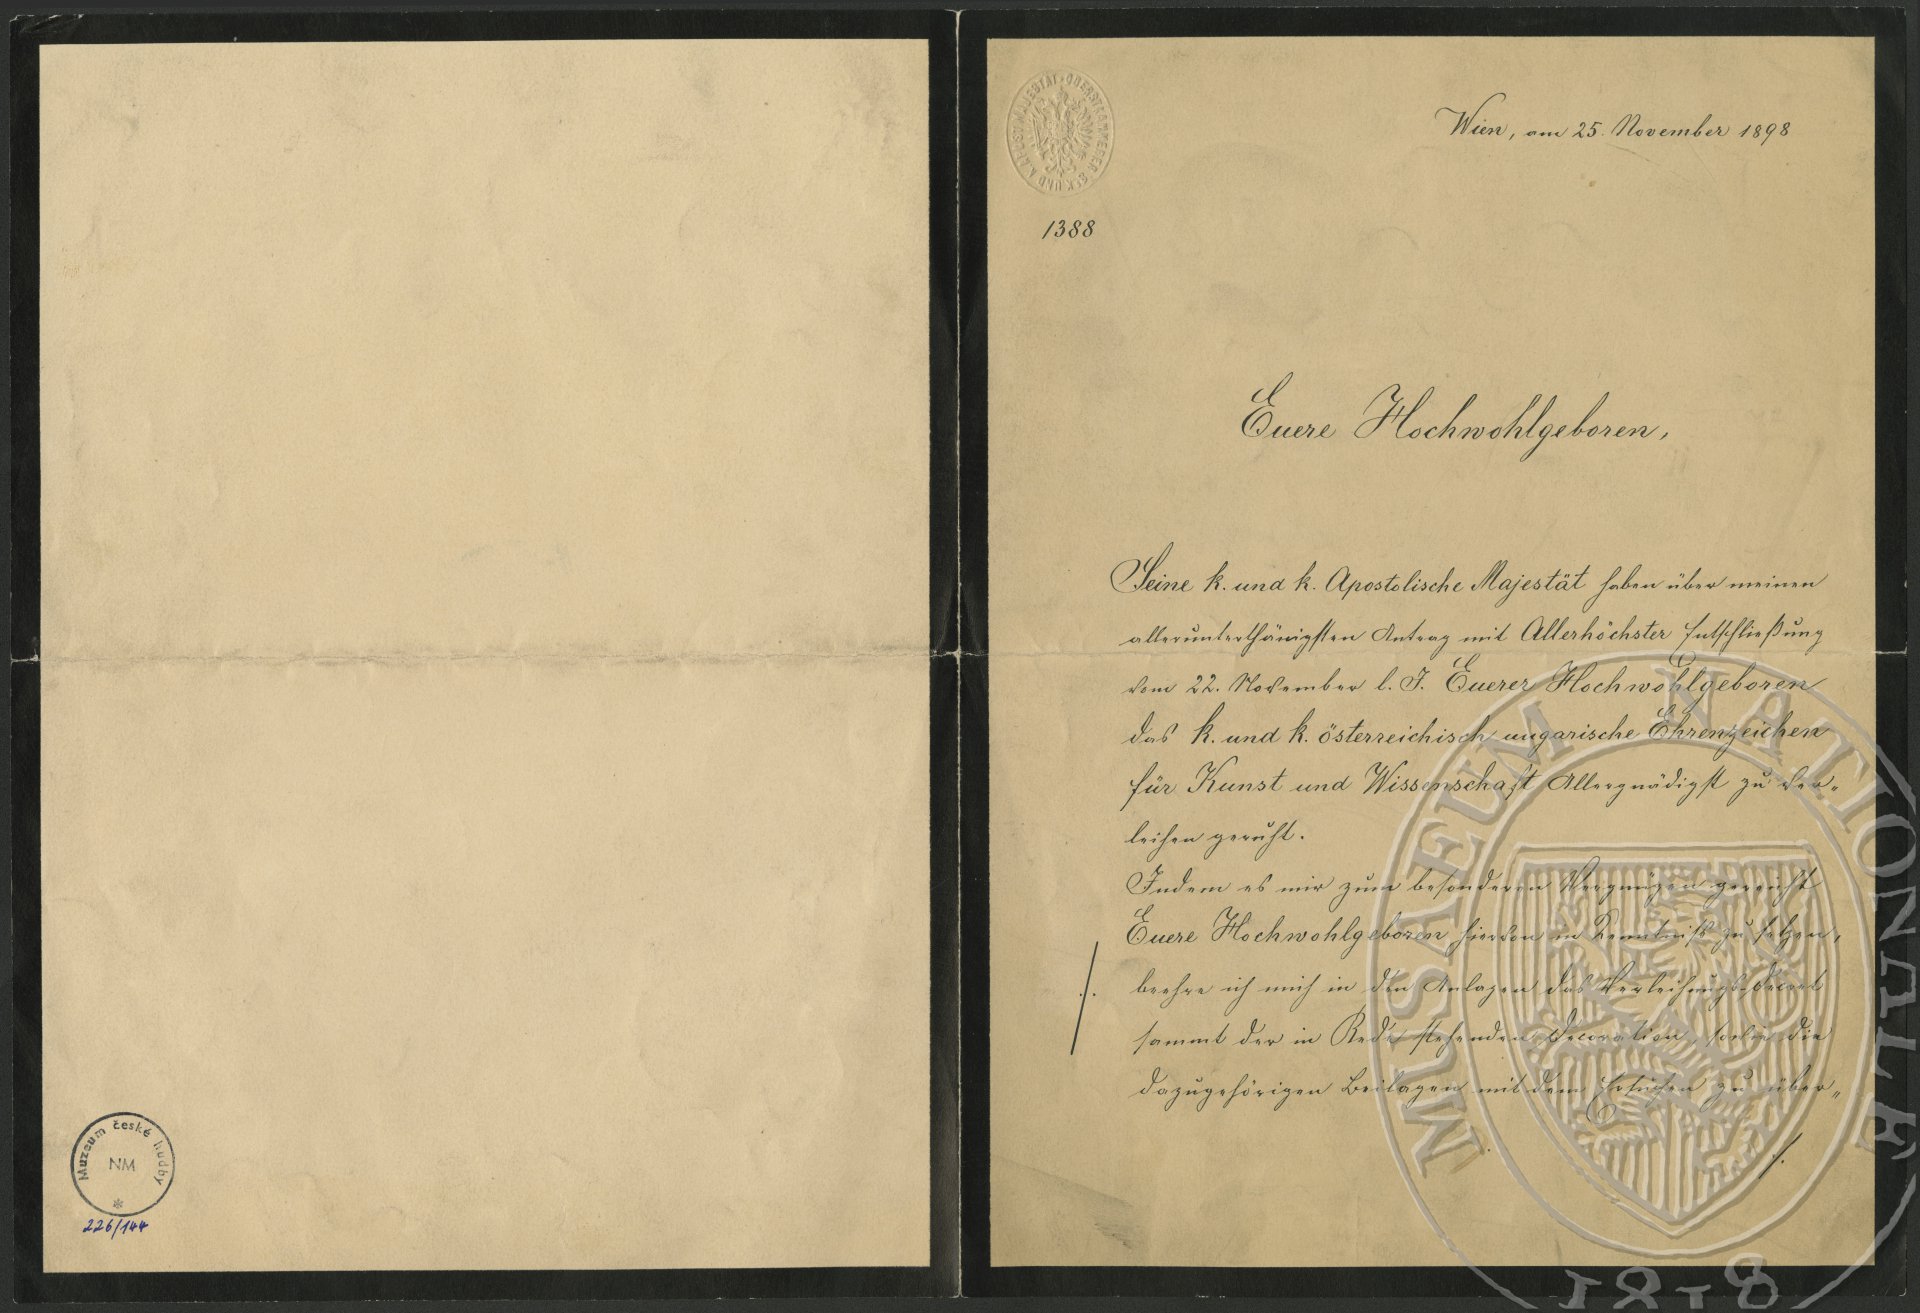 Muzeum české hudby
NM
226/144
K. UND K. APOSTOL. MAJESTÄT · OBERSTKÄMMERER Sr
Wien, am 25. November 1898
1388
Euere Hochwohlgeboren,
Seine k. und k. Apostolische Majestät haben über meinen
allerunterthänigsten Antrag mit Allerhöchster Entschließung
vom 22. November l. J. Euerer Hochwohlgeboren
das k. und k. österreichisch ungarische Ehrenzeichen
für Kunst und Wissenschaft Allergnädigst zu ver-
leihen geruht.
Indem es mir zum besonderen Vergnügen gereicht
Euere Hochwohlgeboren hievon in Kenntniß zu setzen,
beehre ich mich in den Anlagen das Verleihungs-Decret
sammt der in Rede stehenden Decoration, sowie die
dazugehörigen Beilagen mit dem Ersuchen zu über-
./.
MUSAEUM NATIONALE
1818